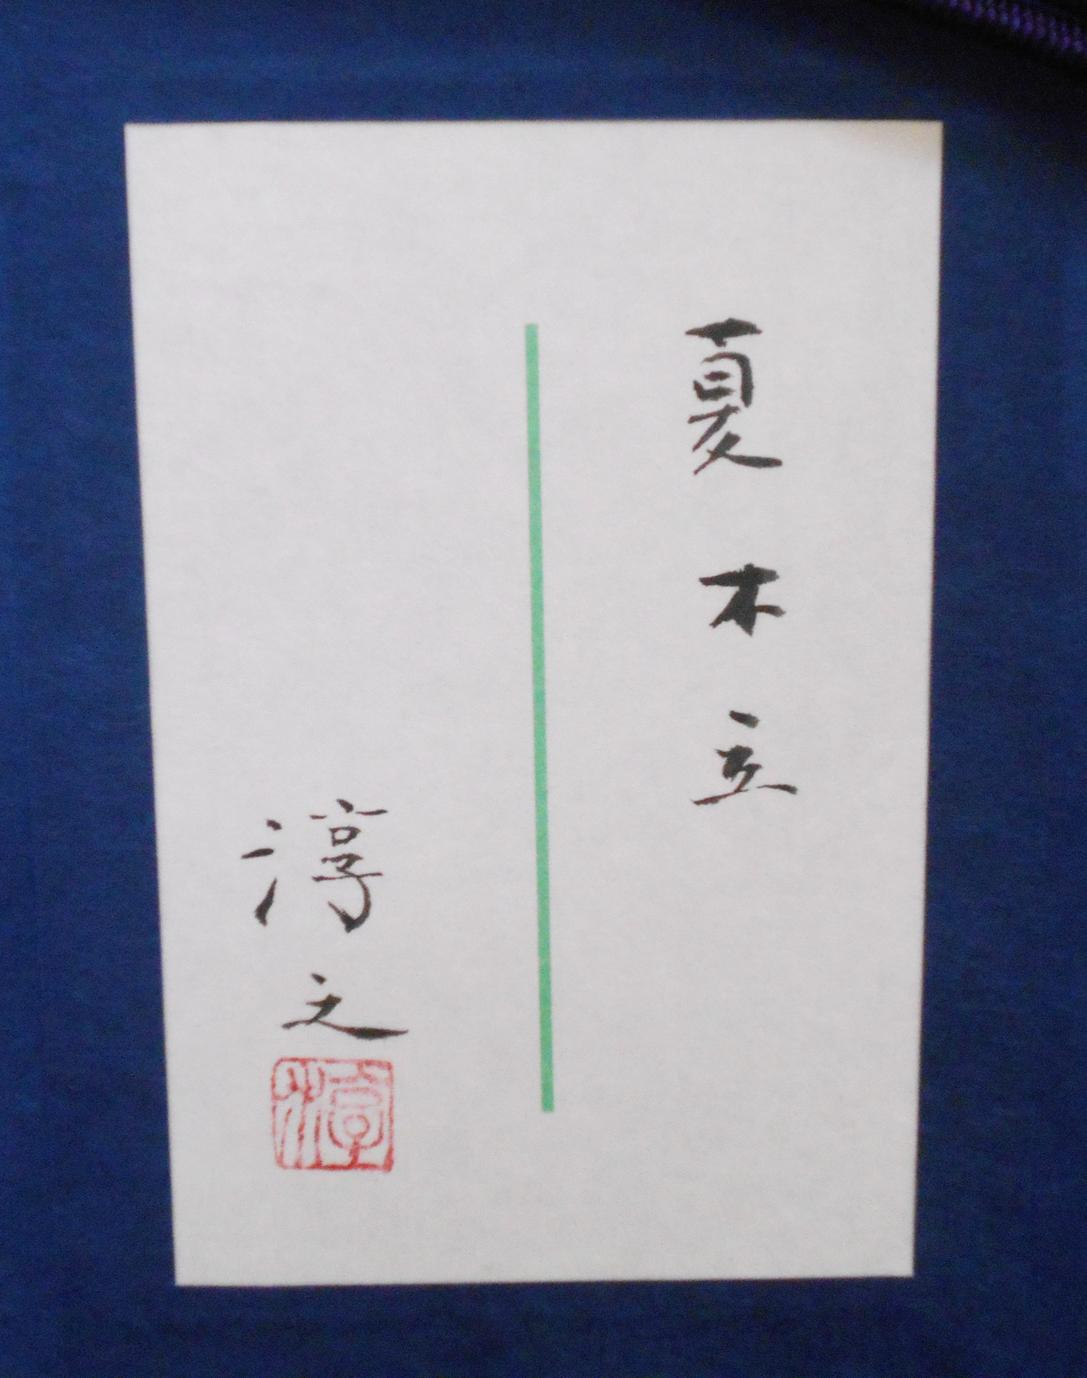 夏木立
淳之
淳